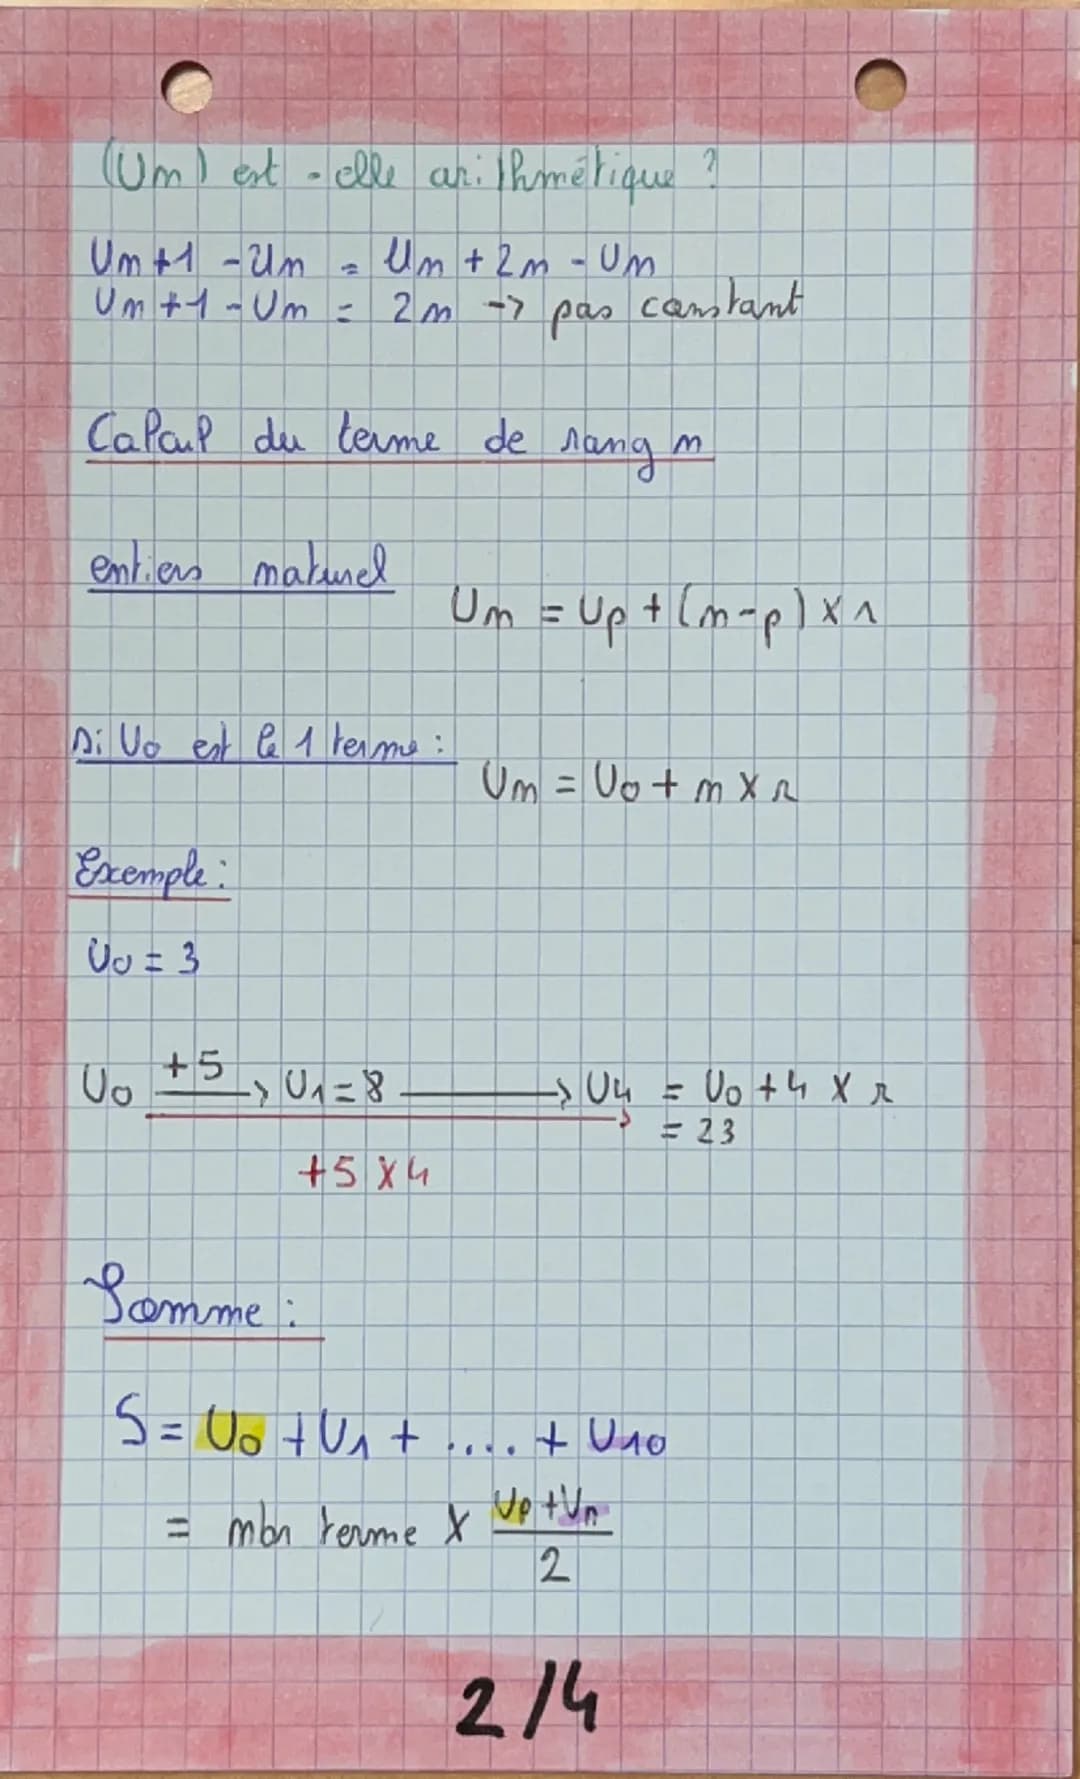 (Un) est-elle arithmétique ?
Un+1 - Un = Un + 2n - Un
Un+1 - Un = 2n -> pas constant
Calcul du terme de rang n
entiers naturel
Un = Up + (n-p) x r
si U0 est le 1 terme :
Un = U0 + n x r
Exemple :
U0 = 3
U0 +5 → U1 = 8 → U4 = U0 + 4 x r
= 23
+5 x 4
Somme :
S = U0 + U1 + .... + U10
= nbr terme x (Up + Un)/2
2/4